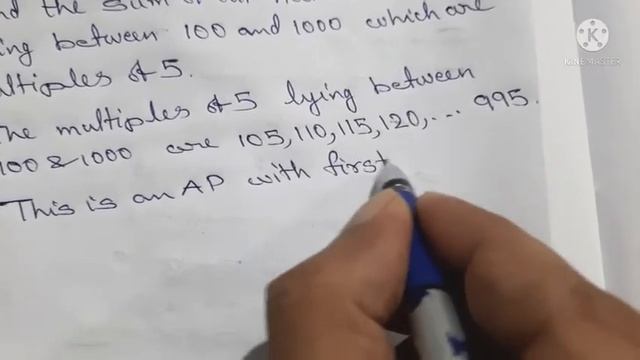 nd the sum of
ing between 100 and 1000 which are
ultiples of 5.
The multiples of 5 lying between
100 & 1000 are 105, 110, 115, 120, ... 995.
This is an AP with first
K
KINEMASTER